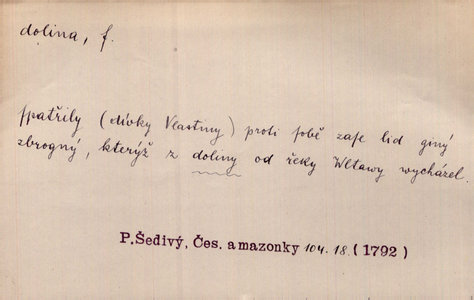 dolina, f.
spatřily (dívky Vlastiny) proti sobě zase lid giný
zbrogný, kterýž z doliny od řeky Wltawy wycházel.
P.Šedivý, Čes. amazonky 104. 18. (1792)